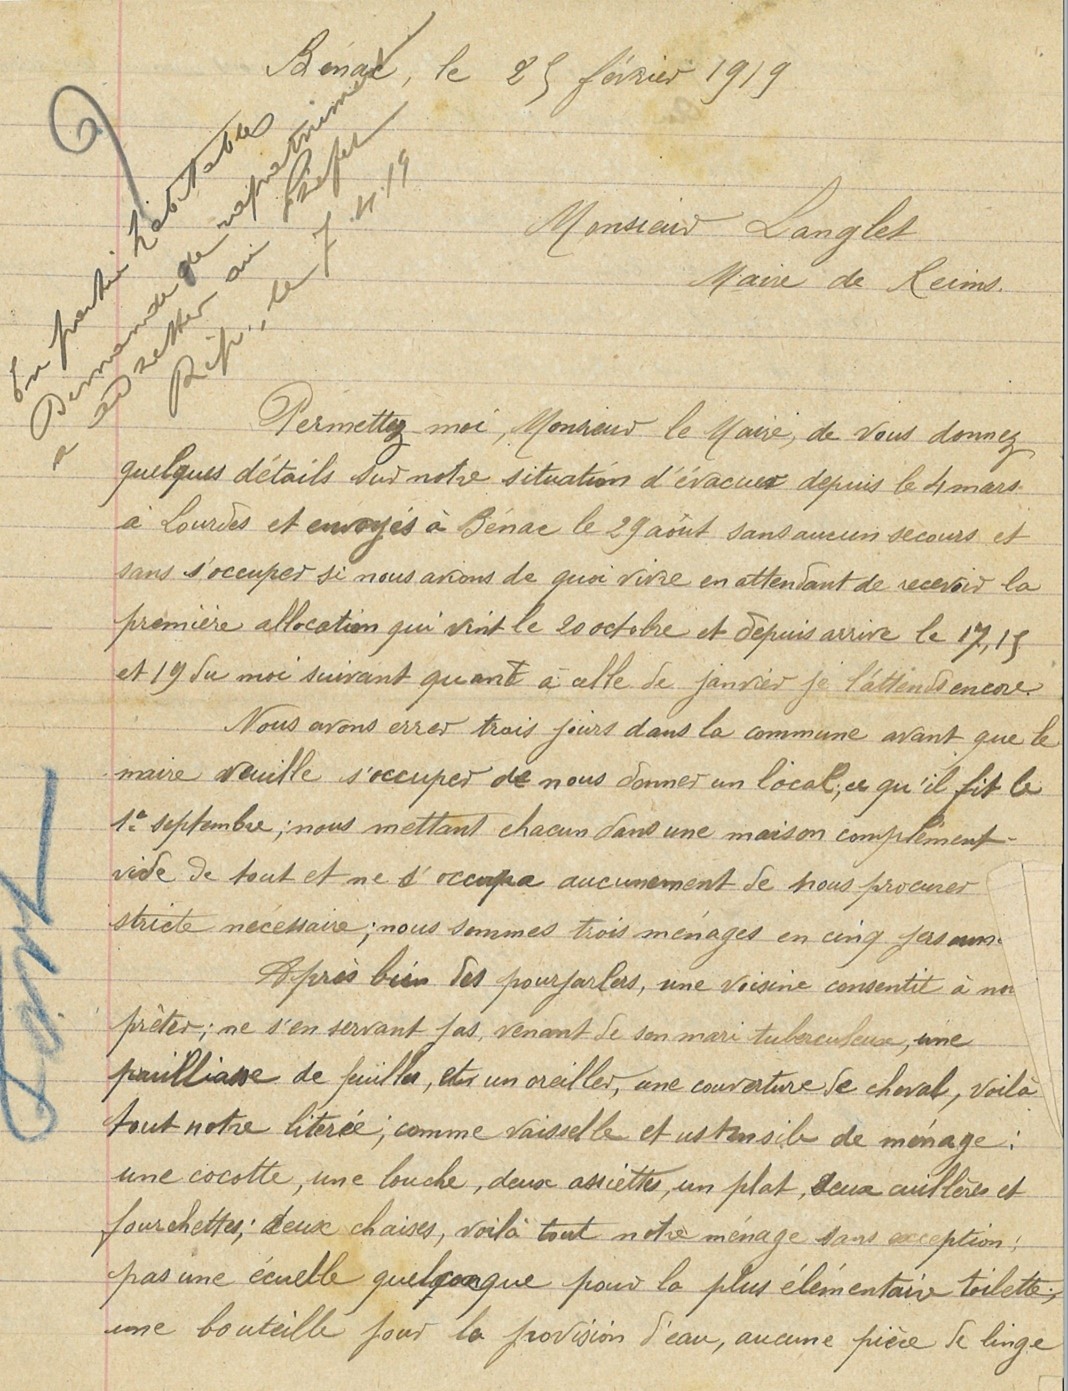 Bénac, le 25 février 1919
En partie habitables
Demande de rapatriement
à adresser au Préfet
Rép., le 7.4.19
Monsieur Langlet
Maire de Reims.
Permettez moi, Monsieur le Maire, de vous donnez
quelques détails sur notre situation d'évacuer depuis le 4 mars
à Lourdes et envoyés à Bénac le 29 août sans aucun secours et
sans s'occuper si nous avions de quoi vivre en attendant de recevoir la
première allocation qui vint le 20 octobre et depuis arrive le 17, 15
et 19 du moi suivant quant à celle de janvier je l'attends encore.
Nous avons errer trois jours dans la commune avant que le
maire veuille s'occuper de nous donner un local; ce qu'il fit le
1er septembre; nous mettant chacun dans une maison complèment
vide de tout et ne s'occupa aucunement de nous procurer
stricte nécessaire; nous sommes trois ménages en cinq person.
Après bien des pourparlers, une voisine consentit à nou
prêter; ne s'en servant pas, venant de son mari tuberculeux, une
pailliasse de feuilles, et un oreiller, une couverture de cheval, voilà
tout notre literée; comme vaisselle et ustensile de ménage:
une cocotte, une louche, deux assiettes, un plat, deux cuillères et
fourchettes; deux chaises, voilà tout notre ménage sans exception;
pas une écuelle quelconque pour la plus élémentaire toilette;
une bouteille pour la provision d'eau, aucune pièce de linge